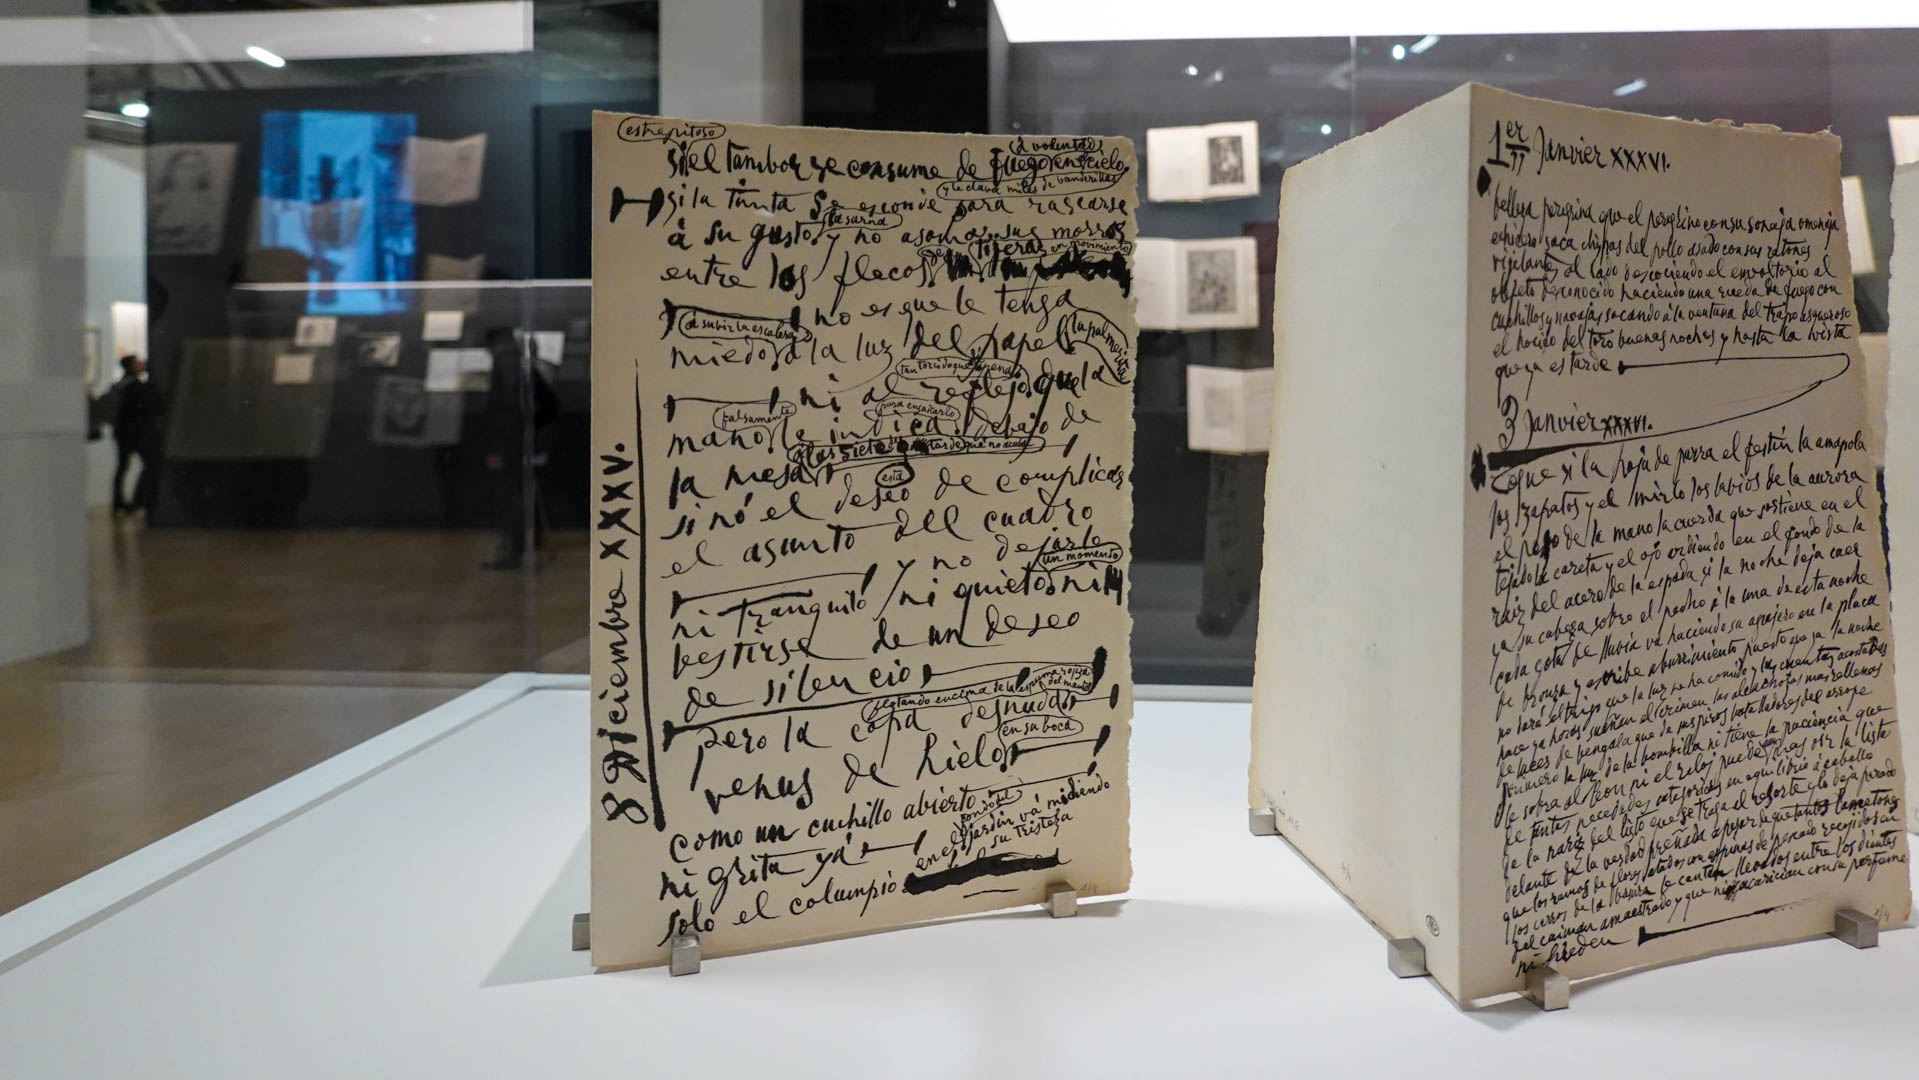 estrepitoso
si el tambor se consume de fuego en cielo
a voluntad
y le clava miles de banderillas
si la tinta se esconde para rascarse
la sarna
a su gusto y no asoma sus morros
entre los flecos de tijeras en movimiento
no es que le tenga
al subir la escalera
miedo a la luz del papel
tan torcido que
ni al reflejo que la
falsamente para engañarlo
mano le indica debajo de
a las siete tarde que no acaba
la mesa
esta
si nó el deseo de complicar
el asunto del cuadro
y no dejarle
un momento
ni tranquilo ni quieto ni
vestirse de un deseo
de silencio
flotando encima de la espuma rojiza
del mantel
pero la copa desnuda
en su boca
venus de hielo
como un cuchillo abierto
ni grita ya
fondo del
en el jardín vá midiendo
su tristeza
solo el columpio
8 Diciembre XXXV.
1er Janvier XXXVI.
belleza peregrina que el peregrino con su sonaja
saca chispas del pollo asado con sus ratones
vigilantes al lado descociendo el envoltorio al
objeto desconocido haciendo una rueda de fuego con
cuchillos y navajas sacando a la ventana del trapo asqueroso
el hocico del toro buenas noches y hasta la vista
que ya es tarde
3 Janvier XXXVI.
que si la hoja de parra el festín la amapola
los zapatos y el mirlo los labios de la aurora
el peso de la mano la cuerda que sostiene en el
tejado la careta y el ojo ardiendo en el fondo de la
raiz del acero de la espada si la noche deja caer
ya su cabeza sobre el pecho a la una de esta noche
cada gota de lluvia va haciendo su agujero en la placa
de bronze y escribe aburrimiento puesto que ya la noche
no dará el trigo que la luz se ha comido y las cuentas acostadas
hace ya horas sueñan el crimen las alcachofas mas rellenas
de luces de bengala que de suspiros batalladores del arrope
primero la luz de la bombilla ni tiene la paciencia que
le sobra al leon ni el reloj puede oir la lista
de tantas necedades categoricas en equilibrio a caballo
de la nariz del listo que se traga el resorte y lo deja parado
delante de la verdad preñada a pesar de que tantos
que los ramos de flores atados con espinas de pescado recojidos en
los cerros de la basura le canten llevados entre los dientes
del caiman amaestrado y que ni acarician con su perfume
ni hieden